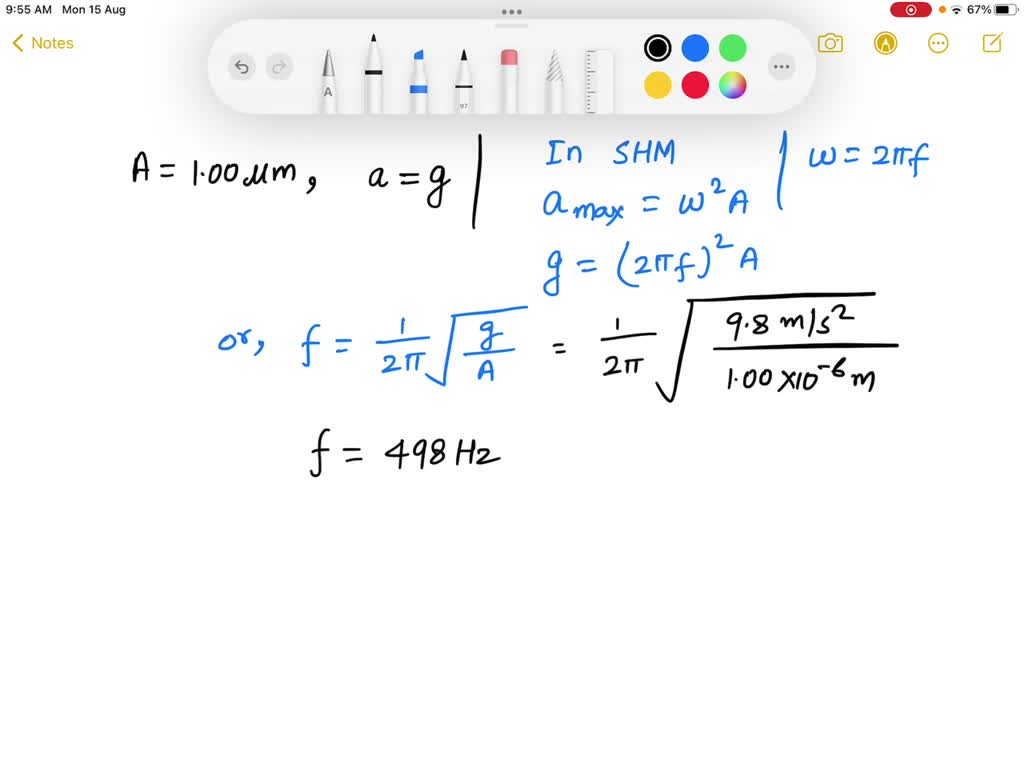 9:55 AM Mon 15 Aug 67%
Notes
A
97
A = 1.00 μm, a = g | In SHM | ω = 2πf
a max = ω² A
g = (2πf)² A
or, f = 1/2π √(g/A) = 1/2π √(9.8 m/s² / 1.00 × 10⁻⁶ m)
f = 498 Hz